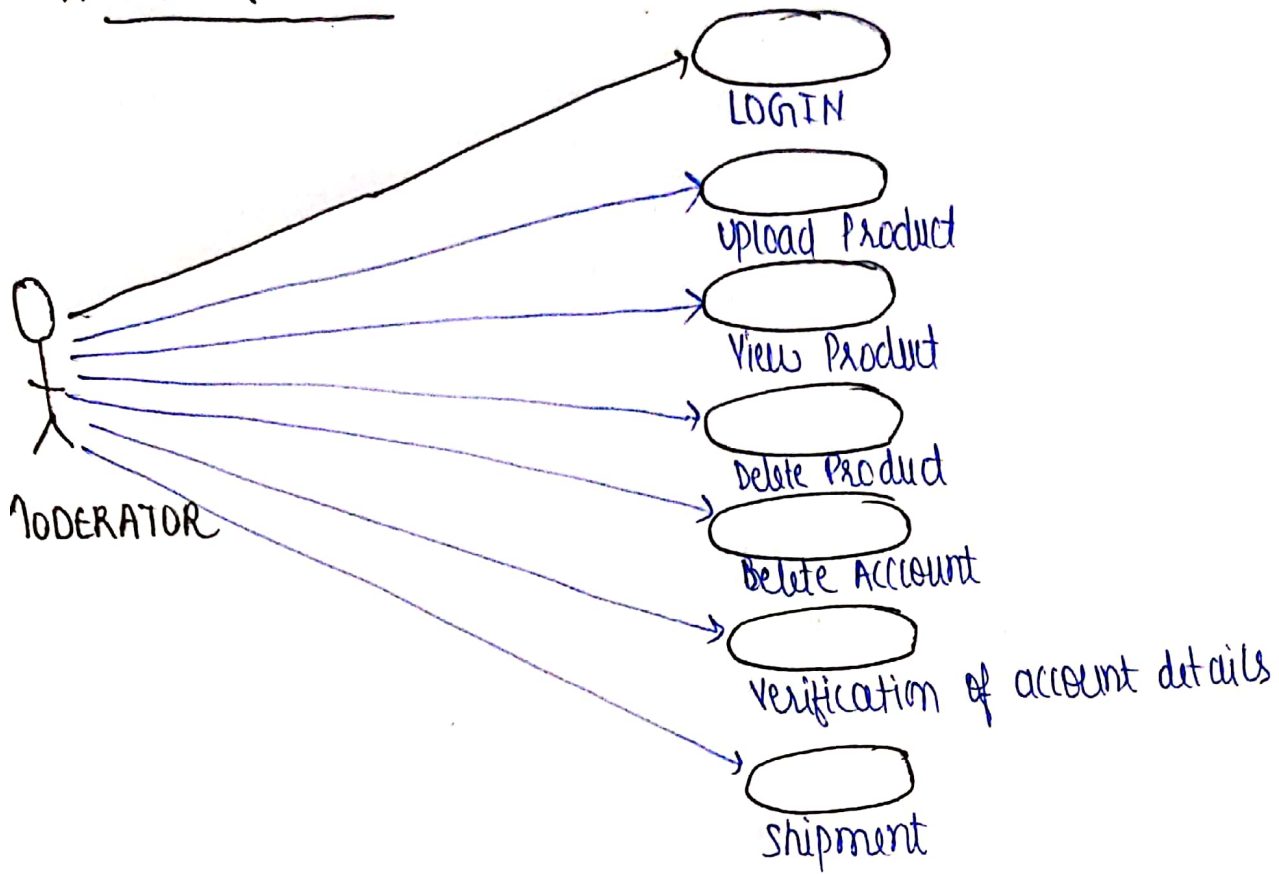 LOGIN
Upload Product
View Product
Delete Product
Delete Acccount
MODERATOR
Verification of account details
Shipment